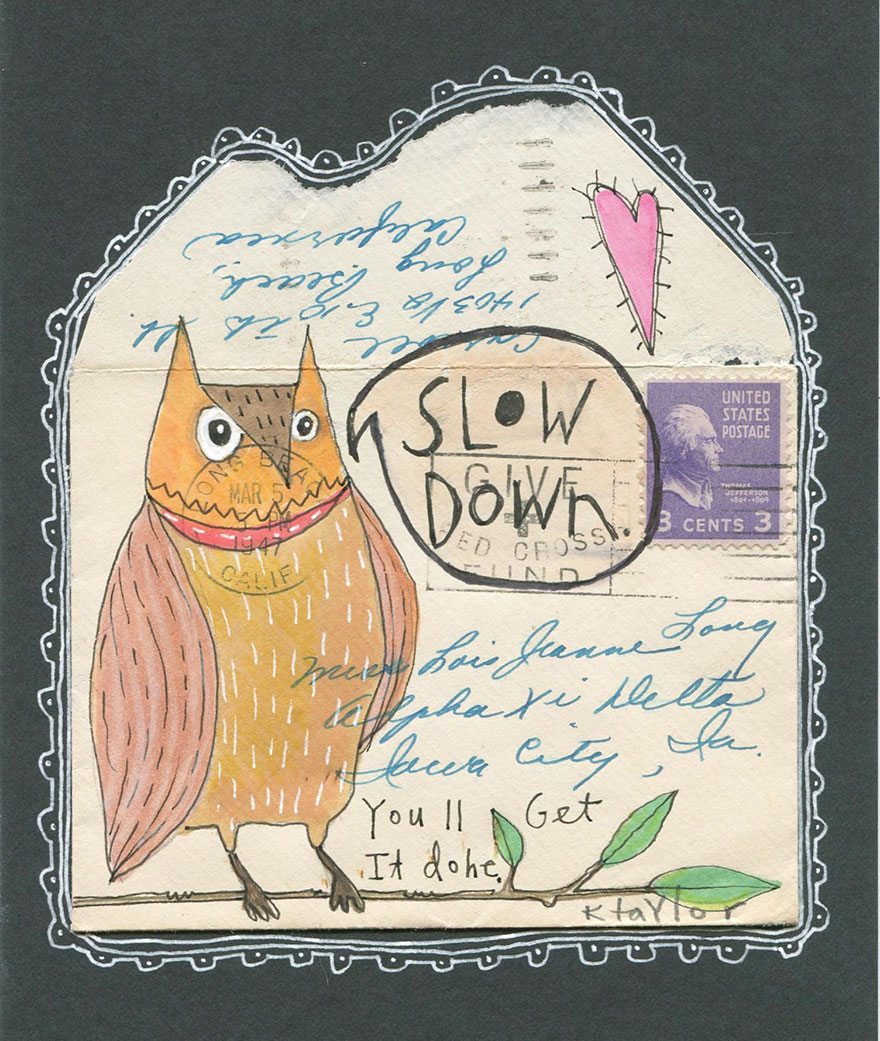 Carroll
1403½ E 10th St
Long Beach,
California
SLOW
DOWN.
GIVE
ED CROSS
FUND
UNITED
STATES
POSTAGE
THOMAS
JEFFERSON
1801-1809
3 CENTS 3
ONG BEA
MAR 5
PM
1947
CALIF
Miss Lois Jeanne Long
Alpha Xi Delta
Iowa City, Ia.
You'll Get
It done.
Ktaylor